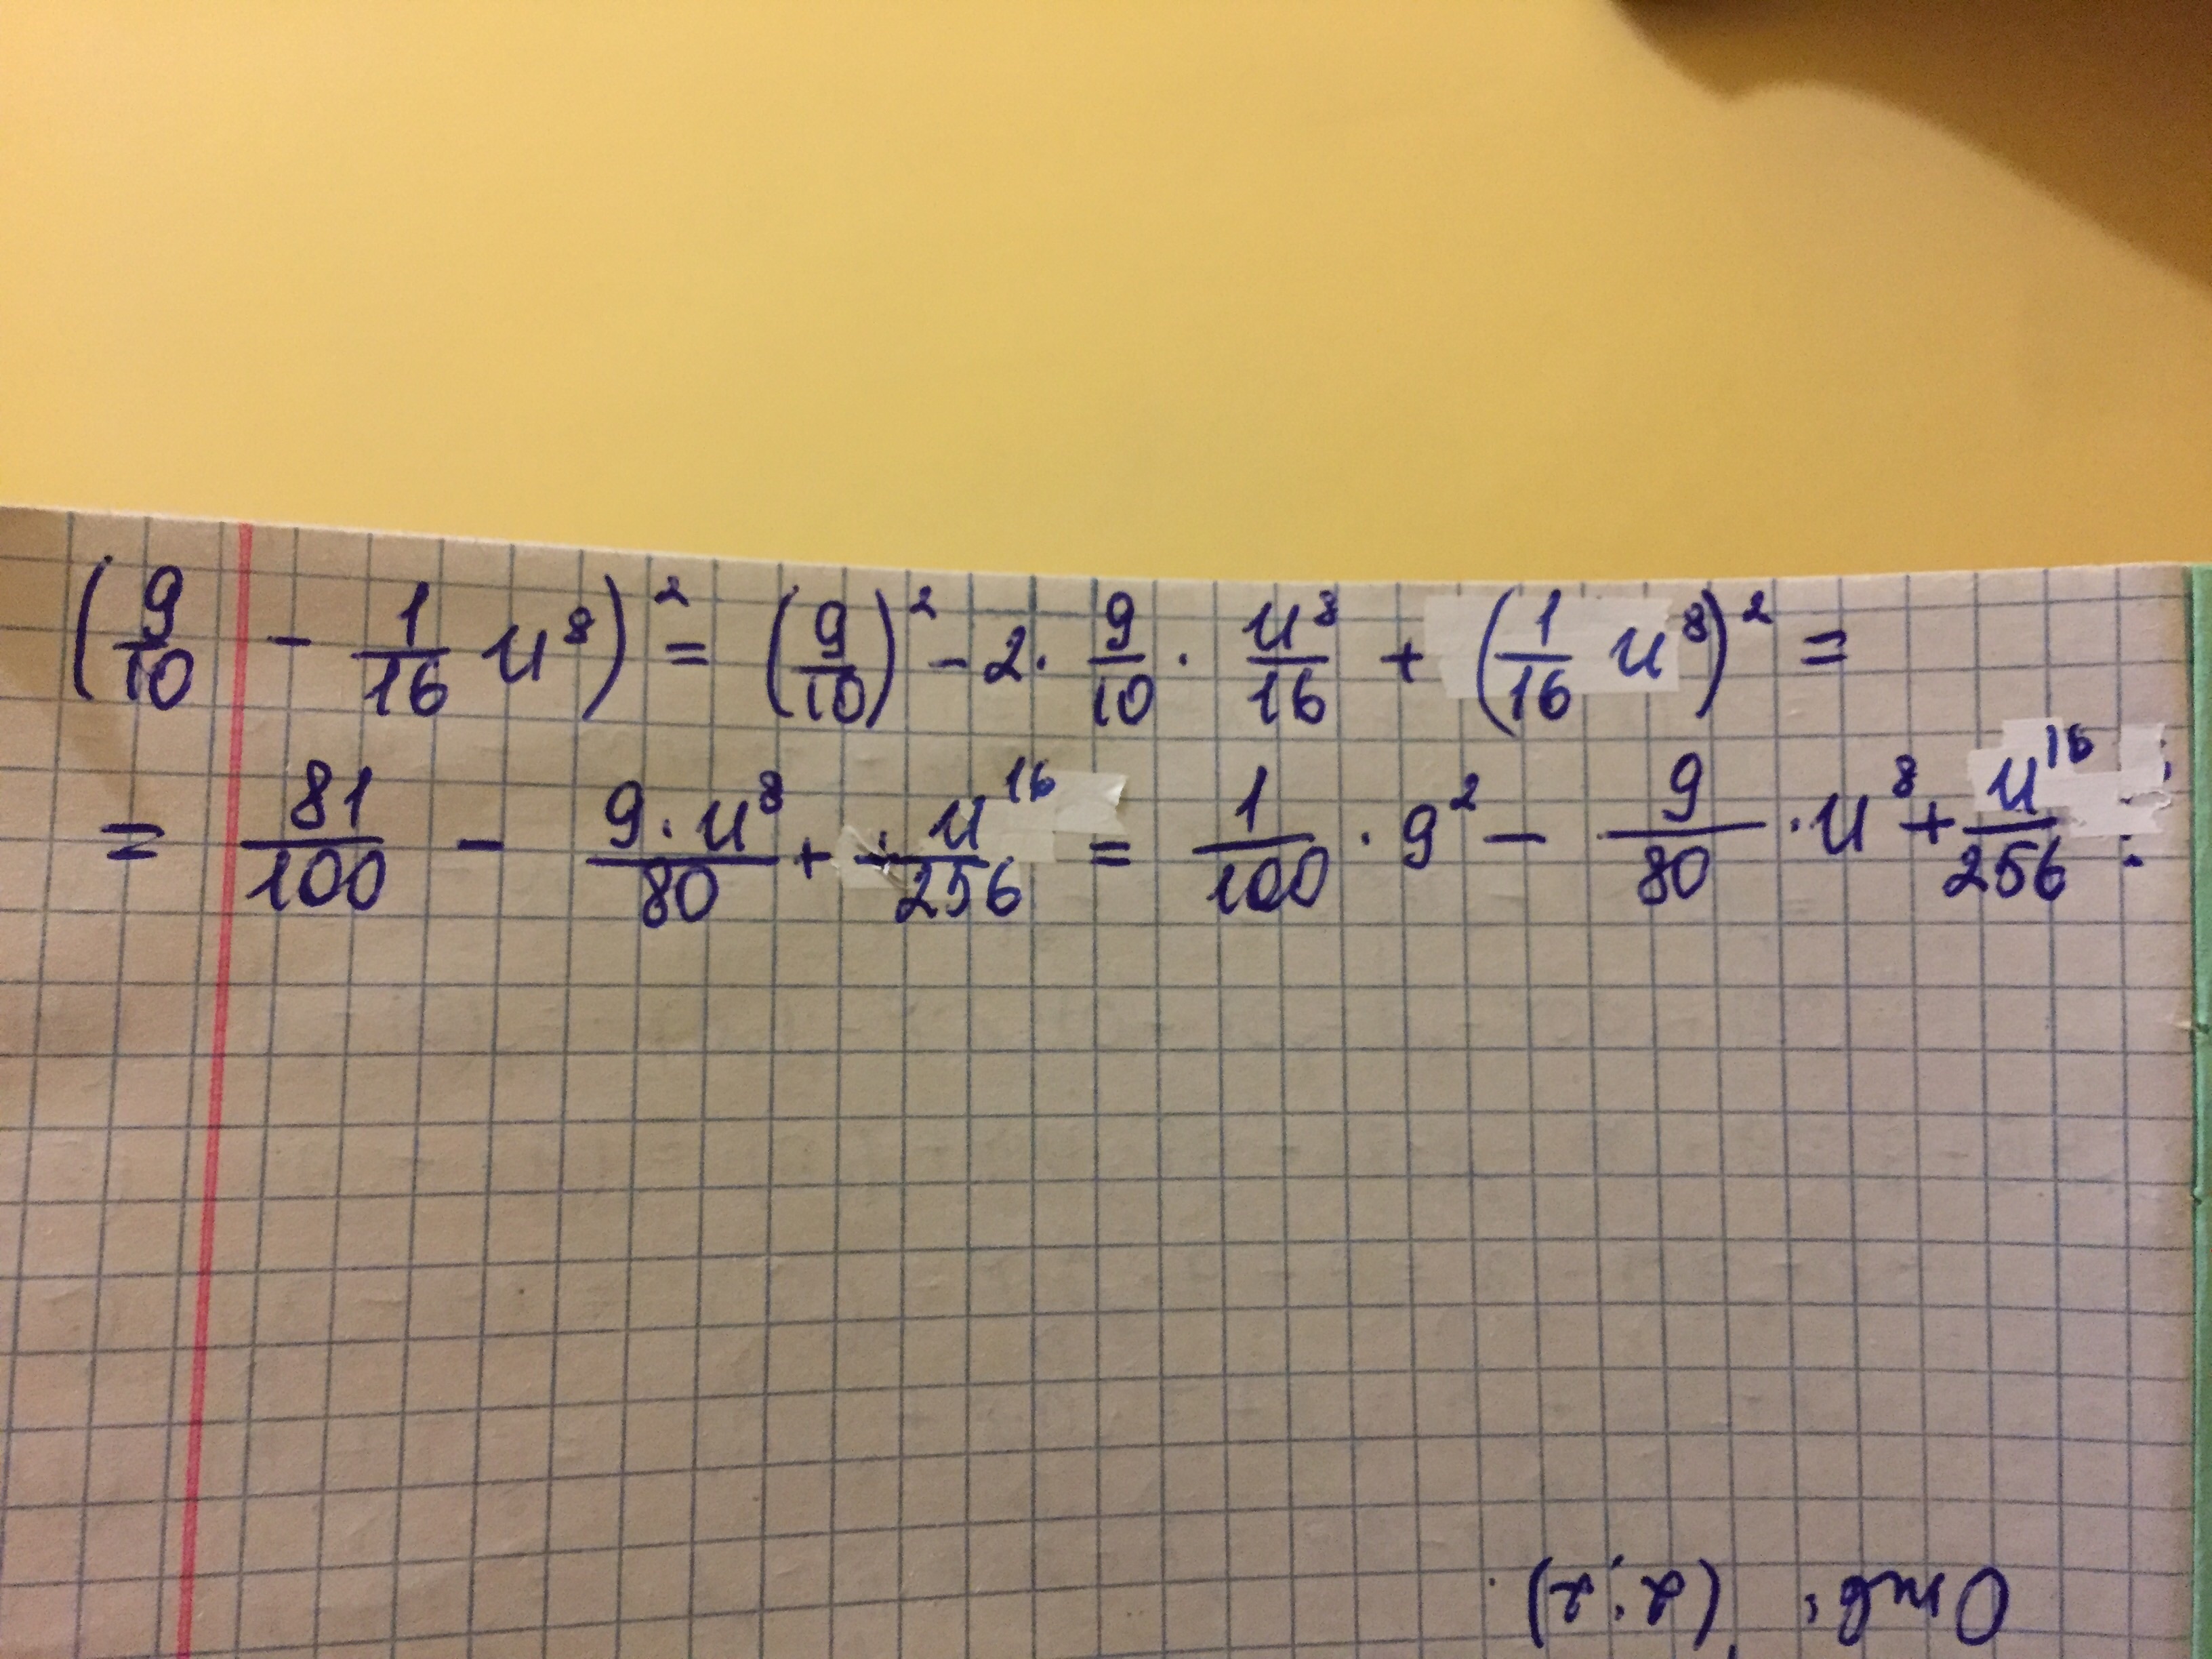 (9/10 - 1/16 u⁸)² = (9/10)² - 2 · 9/10 · u⁸/16 + (1/16 u⁸)² =
= 81/100 - 9·u⁸/80 + + u¹⁶/256 = 1/100 · 9² - 9/80 · u⁸ + u¹⁶/256 :
Отв: (2; 2).